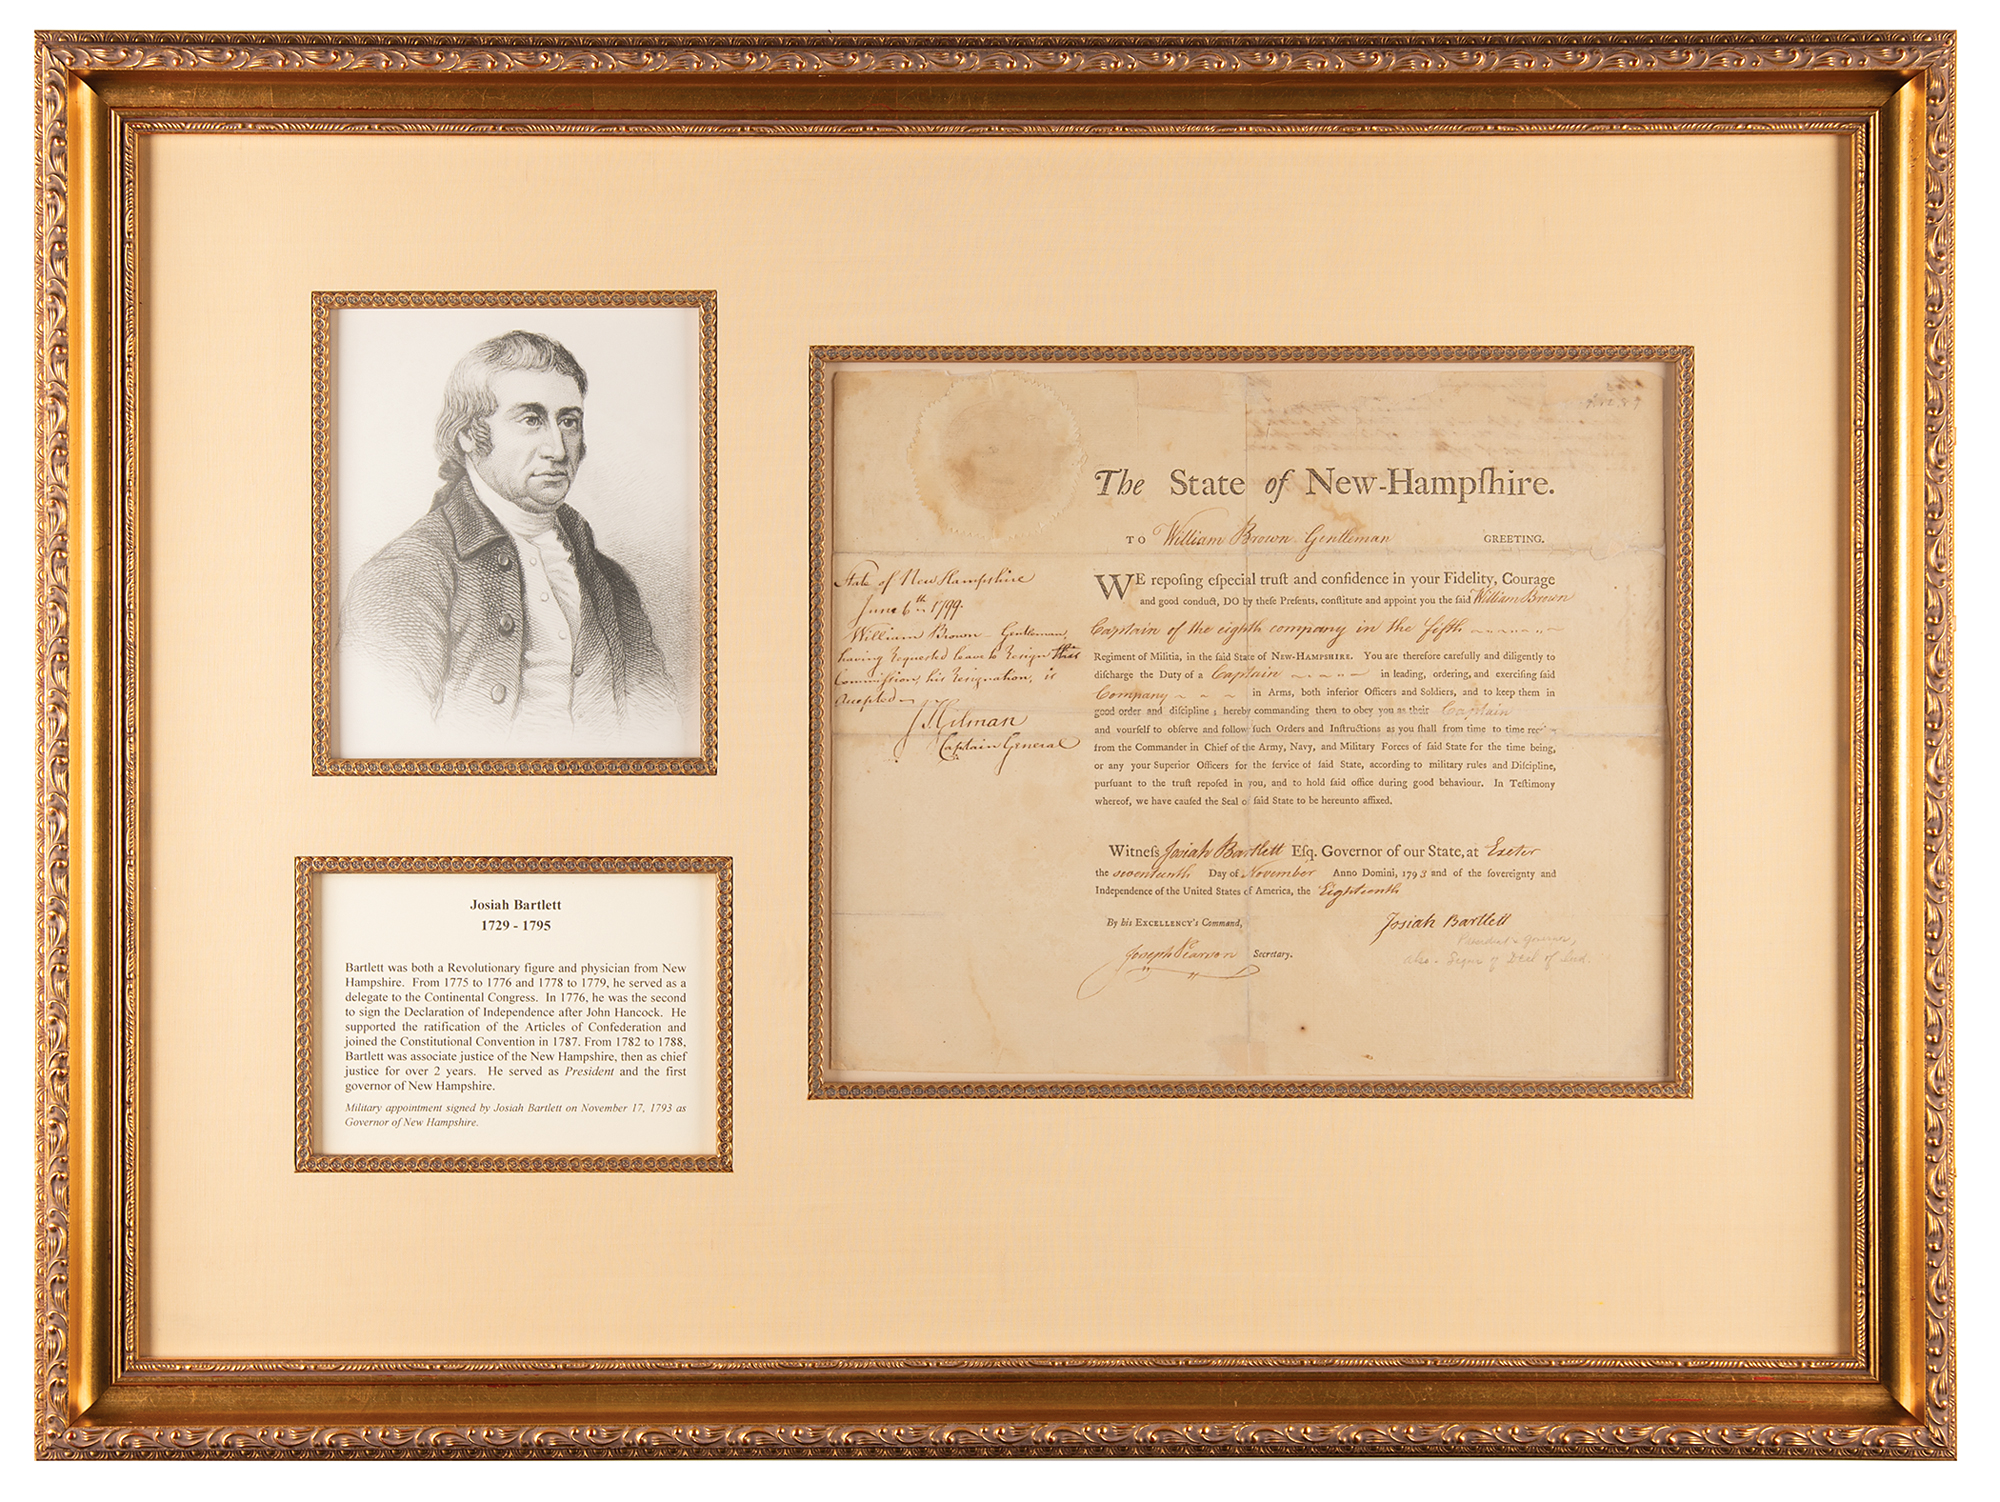 Josiah Bartlett
1729 - 1795
Bartlett was both a Revolutionary figure and physician from New
Hampshire. From 1775 to 1776 and 1778 to 1779, he served as a
delegate to the Continental Congress. In 1776, he was the second
to sign the Declaration of Independence after John Hancock. He
supported the ratification of the Articles of Confederation and
joined the Constitutional Convention in 1787. From 1782 to 1788,
Bartlett was associate justice of the New Hampshire, then as chief
justice for over 2 years. He served as President and the first
governor of New Hampshire.
Military appointment signed by Josiah Bartlett on November 17, 1793 as
Governor of New Hampshire.
The State of New-Hampſhire.
TO William Brown Gentleman GREETING.
WE repoſing eſpecial truſt and confidence in your Fidelity, Courage
and good conduct, DO by theſe Preſents, conſtitute and appoint you the ſaid William Brown
Captain of the eighth company in the fifth
Regiment of Militia, in the ſaid State of NEW-HAMPSHIRE. You are therefore carefully and diligently to
diſcharge the Duty of a Captain in leading, ordering, and exerciſing ſaid
Company in Arms, both inferior Officers and Soldiers, and to keep them in
good order and diſcipline; hereby commanding them to obey you as their Captain
and yourſelf to obſerve and follow ſuch Orders and Inſtructions as you ſhall from time to time
from the Commander in Chief of the Army, Navy, and Military Forces of ſaid State for the time being,
or any your Superior Officers for the ſervice of ſaid State, according to military rules and Diſcipline,
purſuant to the truſt repoſed in you, and to hold ſaid office during good behaviour. In Teſtimony
whereof, we have cauſed the Seal of ſaid State to be hereunto affixed.
Witneſs Josiah Bartlett Eſq. Governor of our State, at Exeter
the seventeenth Day of November Anno Domini, 1793 and of the ſovereignty and
Independence of the United States of America, the Eighteenth
By his EXCELLENCY's Command,
Josiah Bartlett
Joseph Pearson Secretary.
President & Governor,
also - Signer of Decl of Ind.
State of New Hampshire
June 6th 1799.
William Brown Gentleman,
having requested leave to resign this
Commission, his resignation, is
Accepted
J Gilman
Captain General